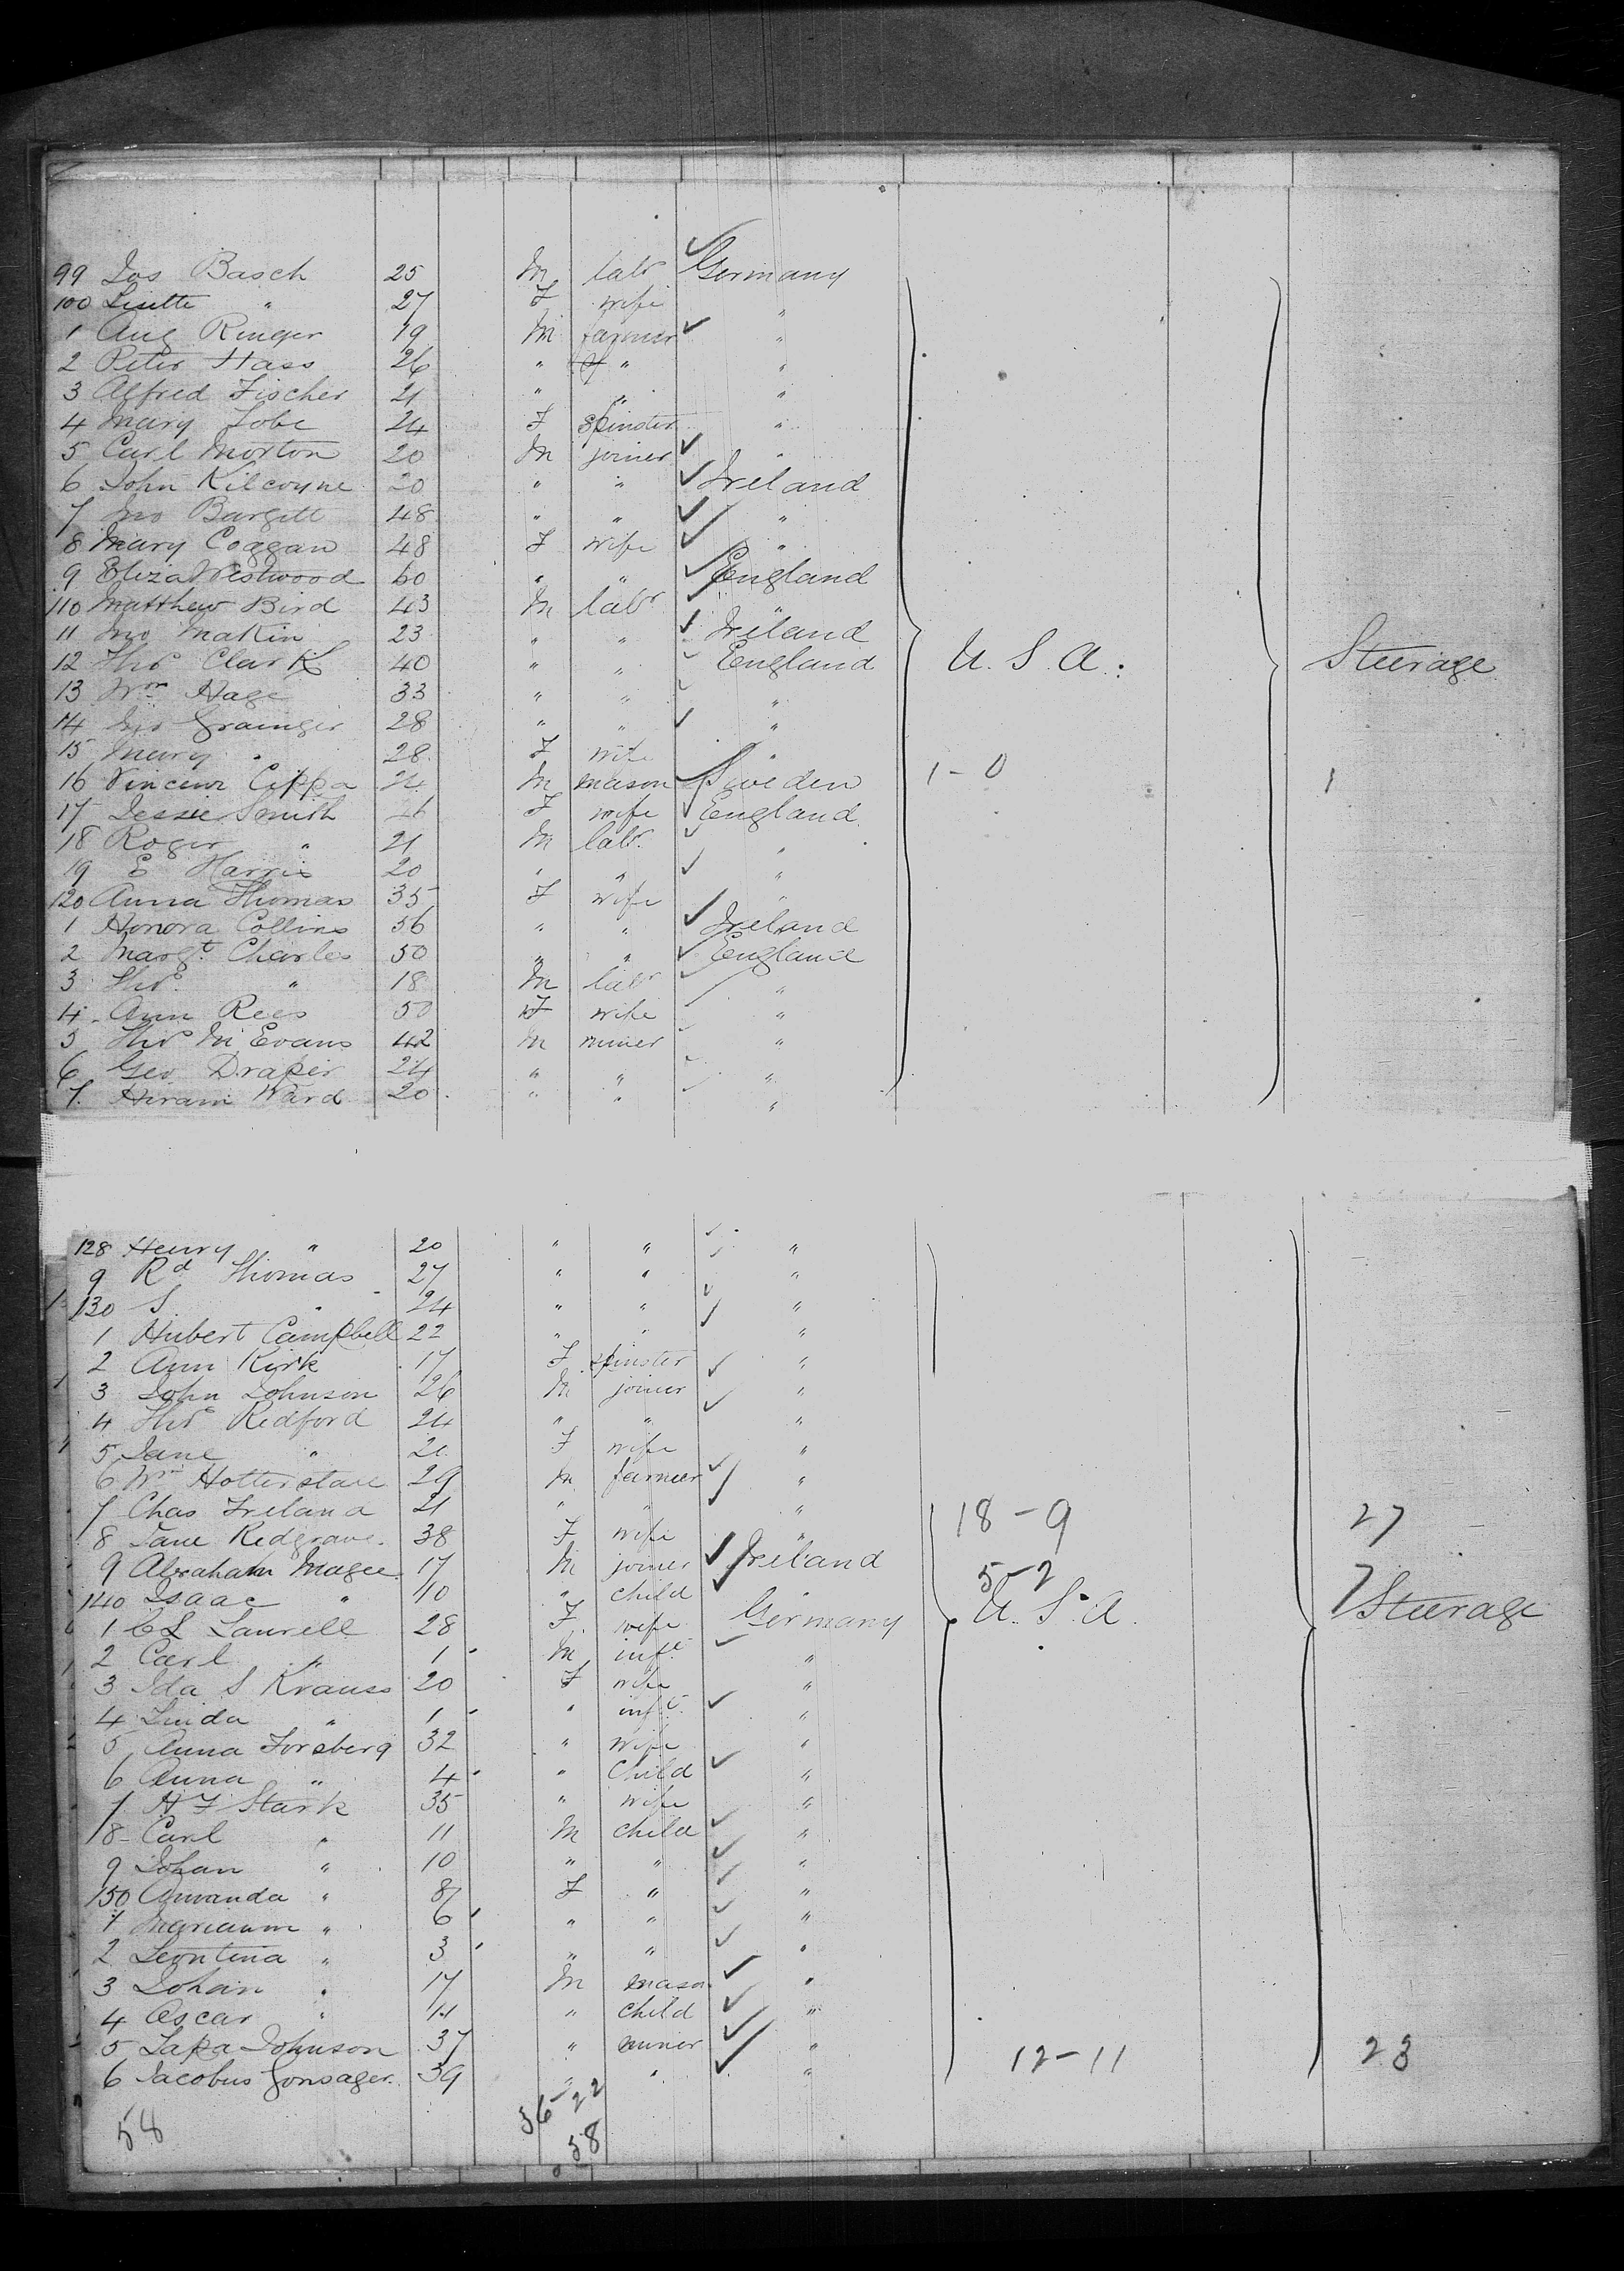 99 Jos Basch 25 M labr Germany
100 Lisette " 27 F wife "
1 Aug Ringer 19 M farmer "
2 Peter Hass 26 " " "
3 Alfred Fischer 21 " " "
4 Mary Lobe 24 F spinster "
5 Carl Morton 20 M joiner "
6 John Kilcoyne 20 " " Ireland
7 Jno Bargett 48 " " "
8 Mary Coggan 48 F wife "
9 Eliza Westwood 60 " " England
110 Matthew Bird 43 M labr "
11 Jno Makin 23 " " Ireland
12 Thos Clark 40 " " England U.S.A. Steerage
13 Wm Hage 33 " " "
14 Jno Grainger 28 " " "
15 Mary " 28 F wife "
16 Cippa 24 M mason Sweden 1-0 1
17 Jessie Smith 26 F wife England
18 Roger " 21 M labr "
19 E Harris 20 " " "
120 Anna Thomas 35 F wife "
1 Honora Collins 56 " " Ireland
2 Margt Charles 50 " " England
3 Thos " 18 M labr "
4 Ann Rees 50 F wife "
5 Thos M Evans 42 M miner "
6 Geo Draper 24 " " "
7 Hiram Ward 20 " " "
128 Henry " 20 " " "
9 Rd Thomas 27 " " "
130 S " 24 " " "
1 Hubert Campbell 22 " " "
2 Ann Kirk 17 F spinster "
3 John Johnson 26 M joiner "
4 Thos Redford 24 " " "
5 Jane " 21 F wife "
6 Wm 29 M farmer "
7 Chas Ireland 21 " " " 18-9 27
8 Jane Redgrave 38 F wife "
9 Abraham Magee 17 M joiner Ireland 5-2 7
140 Isaac " 10 " child U.S.A. Steerage
1 C L Laurell 28 F wife Germany
2 Carl " 1 M inft "
3 Ida S Krauss 20 F wife "
4 Linda " 1 " inft "
5 Anna Forsberg 32 " wife "
6 Anna " 4 " child "
7 H F Stark 35 " wife "
8 Carl " 11 M child "
9 Johan " 10 " " "
150 Amanda " 8 F " "
1 " 6 " " "
2 Leontina " 3 " " "
3 Johan " 17 M mason "
4 Oscar " 11 " child "
5 Lapa Johnson 37 " miner " 12-11 23
6 Jacobus Gonsager 39 " " "
36 22
58 58